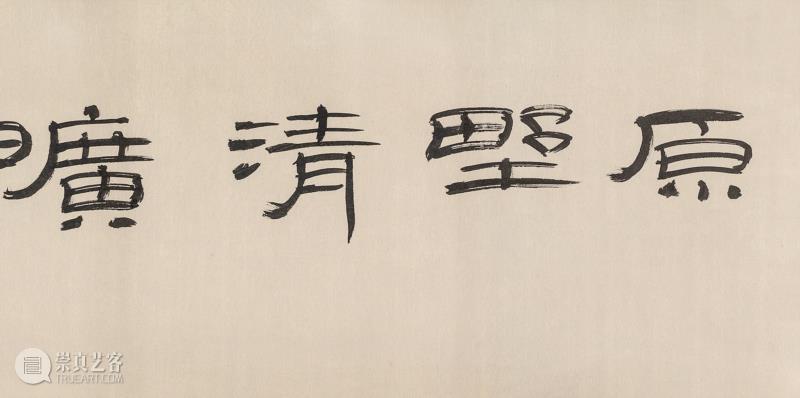 原野清曠
崇真艺客
TRUEART.COM